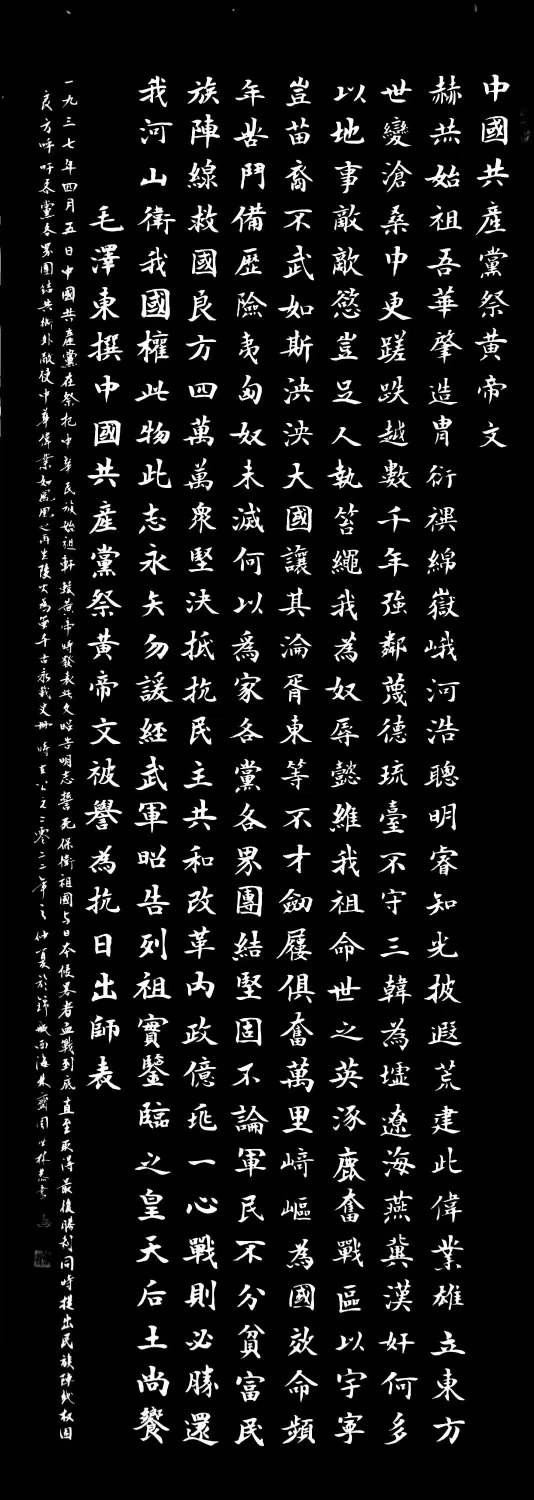 中國共產黨祭黃帝文
赫共始祖吾華肇造冑衍禩綿嶽峨河浩聰明睿知光披遐荒建此偉業雄立東方
世變滄桑中更蹉跌越數千年強鄰蔑德琉臺不守三韓為墟遼海燕冀漢奸何多
以地事敵敵慾豈足人執笞繩我為奴辱懿維我祖命世之英涿鹿奮戰區以宇寧
豈苗裔不武如斯泱泱大國讓其淪胥東等不才劒屨俱奮萬里崎嶇為國效命頻
年苦鬥備歷險夷匈奴未滅何以為家各黨各界團結堅固不論軍民不分貧富民
族陣線救國良方四萬萬眾堅決抵抗民主共和改革內政億兆一心戰則必勝還
我河山衛我國權此物此志永矢勿諼經武軍昭告列祖實鑒臨之皇天后土尚饗
毛澤東撰中國共產黨祭黃帝文被譽為抗日出師表
一九三七年四月五日中國共產黨在祭祀中華民族始祖軒轅黃帝時發表此文昭告明志誓死保衛祖國與日本侵略者血戰到底直至取得最後勝利同時提出民族陣線救國
良方呼吁各黨各界團結共御外敵使中華偉業如鳳凰之再生千古永載史冊時在公元二零二二年之仲夏於錦城